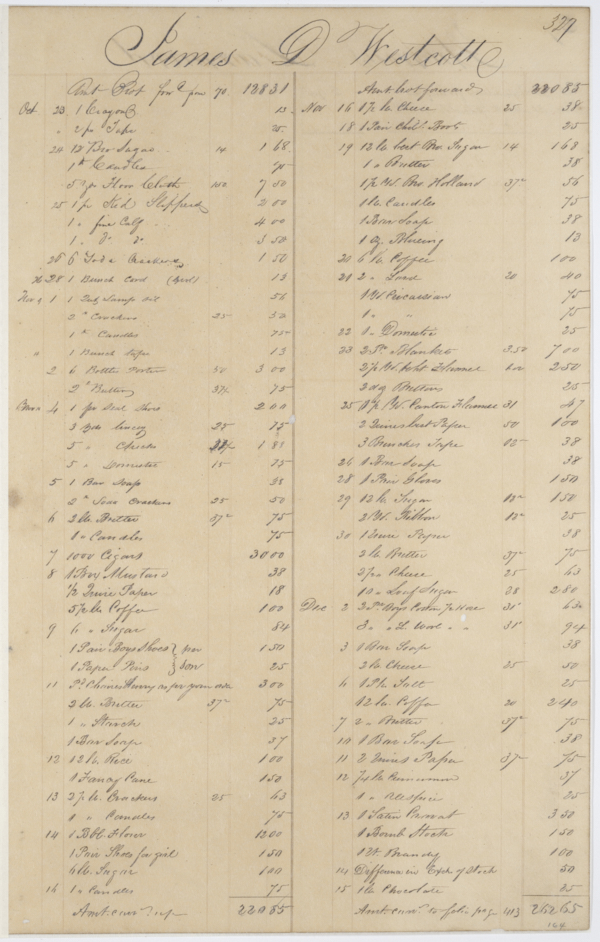 329
James D Westcott
Amt Brot forwd from 70 128 31
Oct 23 1 Crayon 13
" 2 ps Tape 25
24 12 Bro Sugar 14 1 68
1 lb Candles 75
5 yds Floor Cloth 150 7 50
25 1 pr Kid Slippers 2 00
1 " fine Calf 4 00
1 " do do 3 50
26 6 Soda Crackers 1 50
28 1 Bunch Cord 13
Nov 1 1 Lamp Oil 56
2 " Crackers 25 50
1 lb Candles 75
" 1 Bunch Tape 13
2 6 Bottles Porter 50 3 00
2 " Butter 37½ 75
4 1 pr Seal Shoes 2 00
3 yds 25 75
5 " Checks 1 87
5 " Domestic 15 75
5 1 Bar Soap 38
2 " Soda Crackers 25 50
6 2 lb Butter 37½ 75
1 " Candles 75
7 1000 Cigars 30 00
8 1 Box Mustard 38
½ Quire Paper 18
5½ lb Coffee 1 00
9 6 " Sugar 84
1 Pair Boys Shoes } per 1 50
1 Paper Pins } son 25
11 Pd Henry as per your order 3 00
2 lb Butter 37½ 75
1 " Starch 25
1 Bar Soap 37
12 12 lb Rice 1 00
1 Fancy Cane 1 50
13 2½ lb Crackers 25 63
1 " Candles 75
14 1 Bbl Flour 12 00
1 Pair Shoes for girl 1 50
6 lb Sugar 1 00
16 1 " Candles 75
Amt carrd up 220 85
Amt brot forward 220 85
Nov 16 1½ lb Cheese 25 38
18 1 Pair Chil. Boots 25
19 12 lb best Bro. Sugar 14 1 68
1 " Butter 38
1½ Yd Bro Holland 37½ 56
1 lb Candles 75
1 Bar Soap 38
1 Bluing 13
20 6 lb Coffee 1 00
21 2 " Lard 20 40
1 Yd Circassian 75
1 " " 75
22 1 " Domestic 25
23 2 Blankets 3.50 7 00
Yd Wht Flannel 2 50
2 dz Buttons 25
25 1½ Yd Canton Flannel 31 47
2 Quires best Paper 50 1 00
3 Bunches Tape 12½ 38
26 1 Bar Soap 38
28 1 Pair Gloves 1 50
29 12 lb Sugar 12½ 1 50
2 Yd Ribbon 12½ 25
30 1 Quire Paper 38
2 lb Butter 37½ 75
2½ " Cheese 25 63
10 " Loaf Sugar 28 2 80
Dec 2 2 Pr Boys Cotton ½ Hose 31
3 " " L. Wool " " 31 94
3 1 Bar Soap 38
2 lb Cheese 25 50
6 1 Pk Salt 25
12 lb Coffee 20 2 40
7 2 " Butter 37½ 75
10 1 Bar Soap 38
11 2 Quires Paper 37½ 75
12 lb Cinnamon 37
1 " Allspice 25
13 1 Satin Cravat 3 50
1 Bomb Stock 1 50
1 Qt Brandy 1 00
14 Difference in Exch of Stock 50
15 1 lb Chocolate 25
Amt carrd to folio page 413 262 65
164